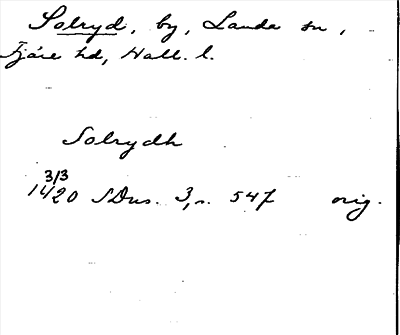 Solryd, by, Landa sn,
Fjäre hd, Hall. l.
Solrydh
3/3
1420 SDns. 3, s. 547 orig.